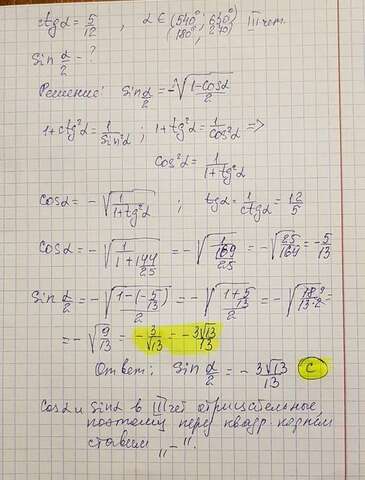 ctgα = 5/12 , α ∈ (540°; 630°) III чет.
(180°; 270°)
Sin α/2 - ?
Решение: Sin α/2 = -√((1-cosα)/2)
1+ctg²α = 1/Sin²α ; 1+tg²α = 1/cos²α =>
cos²α = 1/(1+tg²α)
Cosα = -√(1/(1+tg²α)) ; tgα = 1/ctgα = 12/5
Cosα = -√(1/(1+144/25)) = -√(1/(169/25)) = -√(25/169) = -5/13
Sin α/2 = -√((1-(-5/13))/2) = -√((1+5/13)/2) = -√(18 9/(13·2)) =
= -√(9/13) = -3/√13 = -3√13/13
Ответ: Sin α/2 = -3√13/13 C
Cosα и Sinα в III чет отрицательные,
поэтому перед квадр корнем
ставим „-".